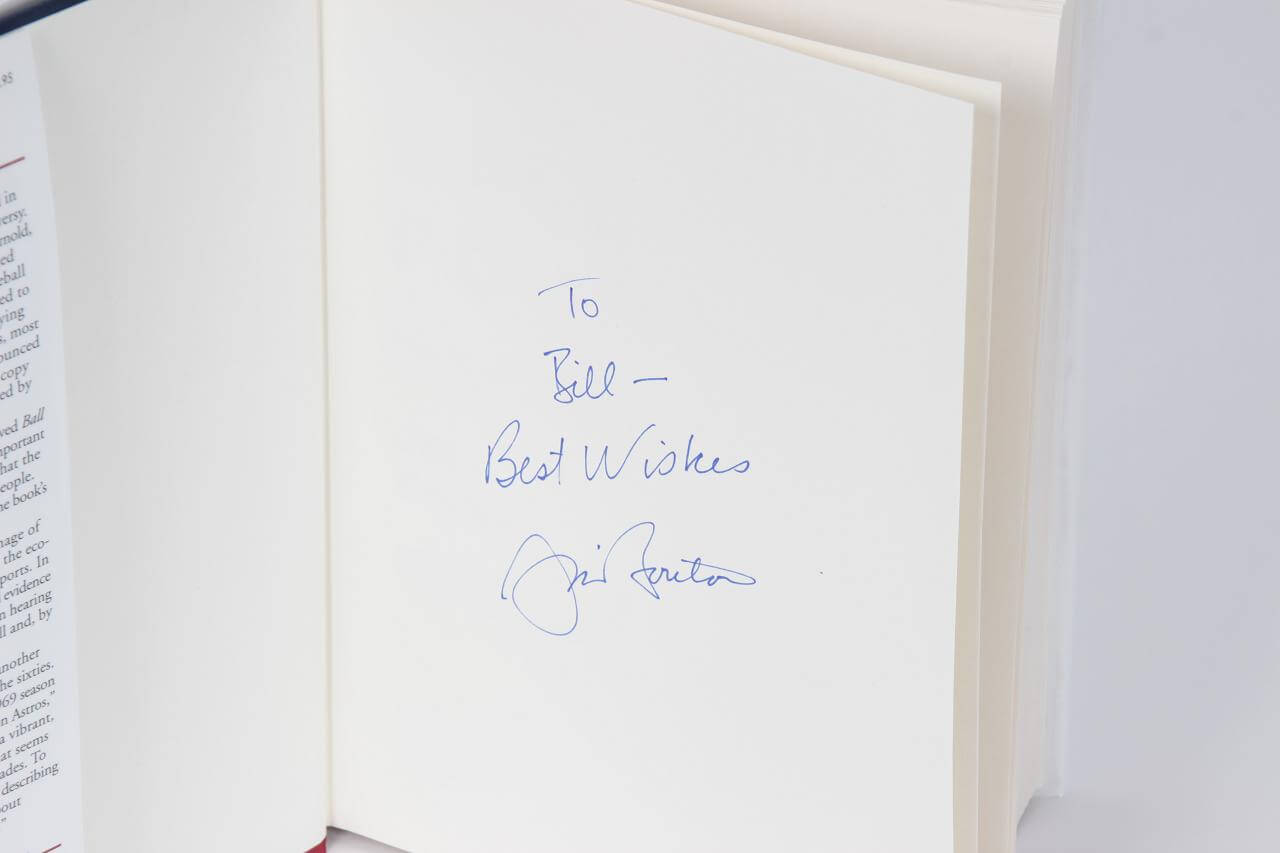 .95
in
versy.
rnold,
ed
eball
ed to
ying
s, most
ounced
copy
ed by
ved Ball
portant
hat the
eople.
he book's
mage of
the eco-
ports. In
evidence
n hearing
ll and, by
nother
he sixties.
969 season
n Astros,"
a vibrant,
at seems
ades. To
describing
out
"
To
Bill —
Best Wishes
Jim Bouton